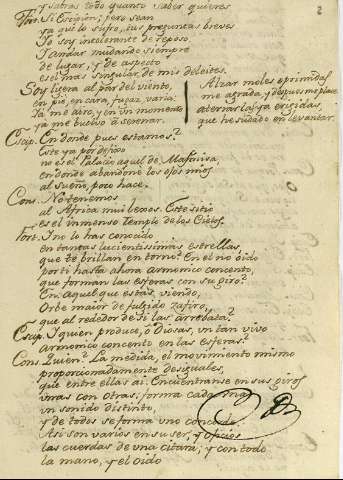 y sabras todo quanto saber quieres
2
For. Si Escipion; pero sean
ya que lo sufro, tus preguntas breves
Yo soy intolerante de reposo
I amàr mudando siempre
de lugar, y de aspecto
es el mas singular de mis deleites.
Soy ligera al par del viento,
en pie, en cara, fugaz, varia:
Ya me aìro, y en un momento
ya me buelvo à serenar.
Alzar moles oprimidas
me agrada, y despues me place
aterrarlas ya erigidas,
que he sudado en levantar.
Escip. En donde pues estamos?
Este ya por defijo
no es el Palacio aquel de Masinisa,
en donde abandonè los ojos mios
al sueño, poco hace.
Cons. No tenemos
al Africa mui lexos. Este sitio
es el inmenso Templo de los Cielos.
Fort. I no lo has conocido
en tantas lucientissimas estrellas,
que te brillan en torno? En el no oido
por ti hasta ahora armonico concento,
que forman las esferas con su giro?
En aquel que estàs, viendo,
Orbe maior de fulgido zafiro,
que al rededor de si las arrebata?
Escip. I quien produce, ò Diosas, un tan vivo
armonico concento en las esferas?
Cons. Quien? La medida, el movimiento mismo
proporcionadamente desiguales,
que entre ellas ai. Encuentranse en sus giros
unas con otras: forma cada una
un sonido distinto,
y de todos se forma uno concorde.
Asi son varios en su ser, y oficios
las cuerdas de una citara; y con todo
la mano, y el oido